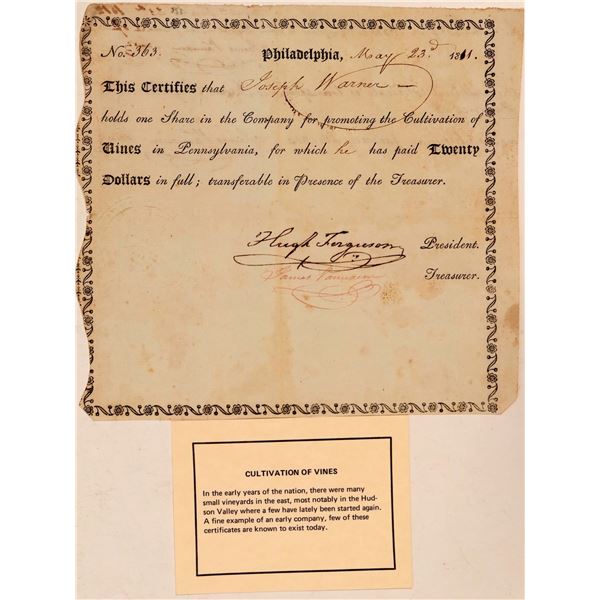 No. 363. Philadelphia, May 23.d 1811.
This Certifies that Joseph Warner
holds one Share in the Company for promoting the Cultivation of
Vines in Pennsylvania, for which he has paid Twenty
Dollars in full; transferable in Presence of the Treasurer.
Hugh Ferguson President.
James Treasurer.
CULTIVATION OF VINES
In the early years of the nation, there were many
small vineyards in the east, most notably in the Hud-
son Valley where a few have lately been started again.
A fine example of an early company, few of these
certificates are known to exist today.